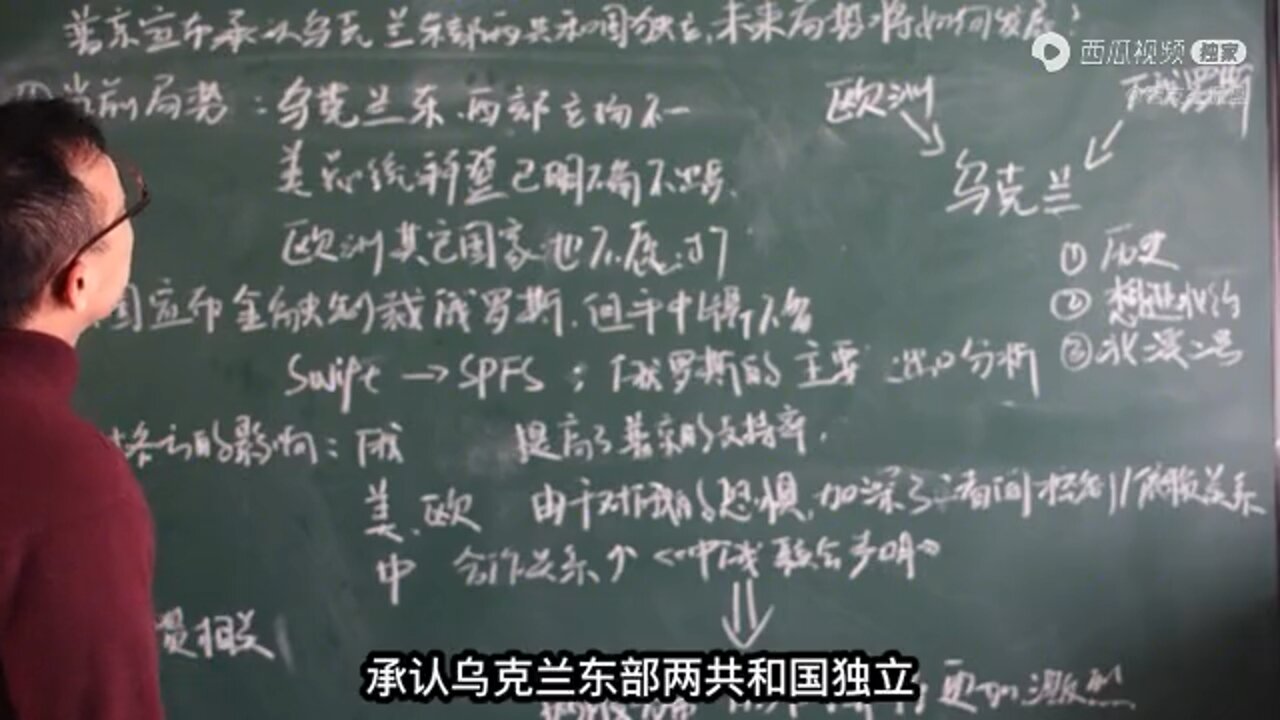 普京宣布承认乌克兰东部两共和国独立,未来局势将如何发展?
西瓜视频 独家
当前局势:乌克兰东、西部立场不一
欧洲
俄罗斯
乌克兰
美总统拜登已明确不出兵.
欧洲其它国家也不愿过
① 历史
② 
③ 北溪二号
国宣布金融制裁俄罗斯,但手中
Swift → SPFS ; 俄罗斯的主要进口分析
各方的影响:俄 提高了普京的支持率.
美、欧 由于对俄的恐惧,加深了 关系
中 合作关系↑《中俄联合声明》
相关
更加激烈
承认乌克兰东部两共和国独立